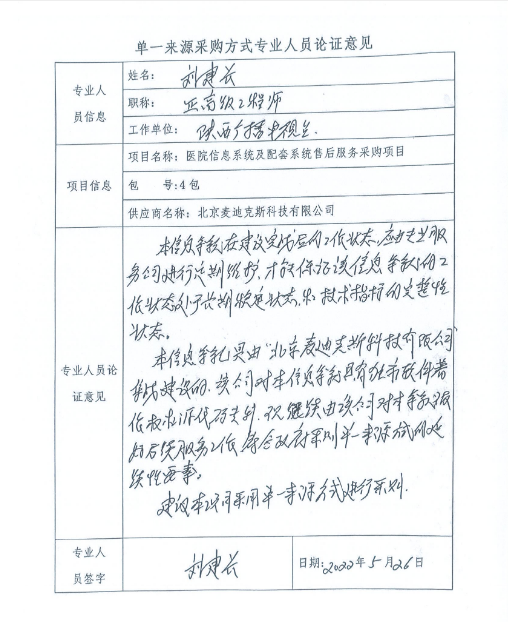 单一来源采购方式专业人员论证意见
专业人员信息
姓名：刘建长
职称：正高级工程师
工作单位：陕西广播电视台.
项目信息
项目名称：医院信息系统及配套系统售后服务采购项目
包 号：4包
供应商名称：北京麦迪克斯科技有限公司
专业人员论证意见
本信息系统在建设完成后的工作状态，应由专业服
务公司进行定期维护，才能保证该信息系统的工
作状态处于长期稳定状态，和技术指标的完整性
状态。
本信息系统是由“北京麦迪克斯科技有限公司”
建设的，该公司对本信息系统具有独立软件著
作权和源代码，
后续服务工作，符合政府采购单一来源方式的延
续性要求。
建议本项目采用单一来源方式进行采购.
专业人员签字
刘建长
日期：2022年5月26日